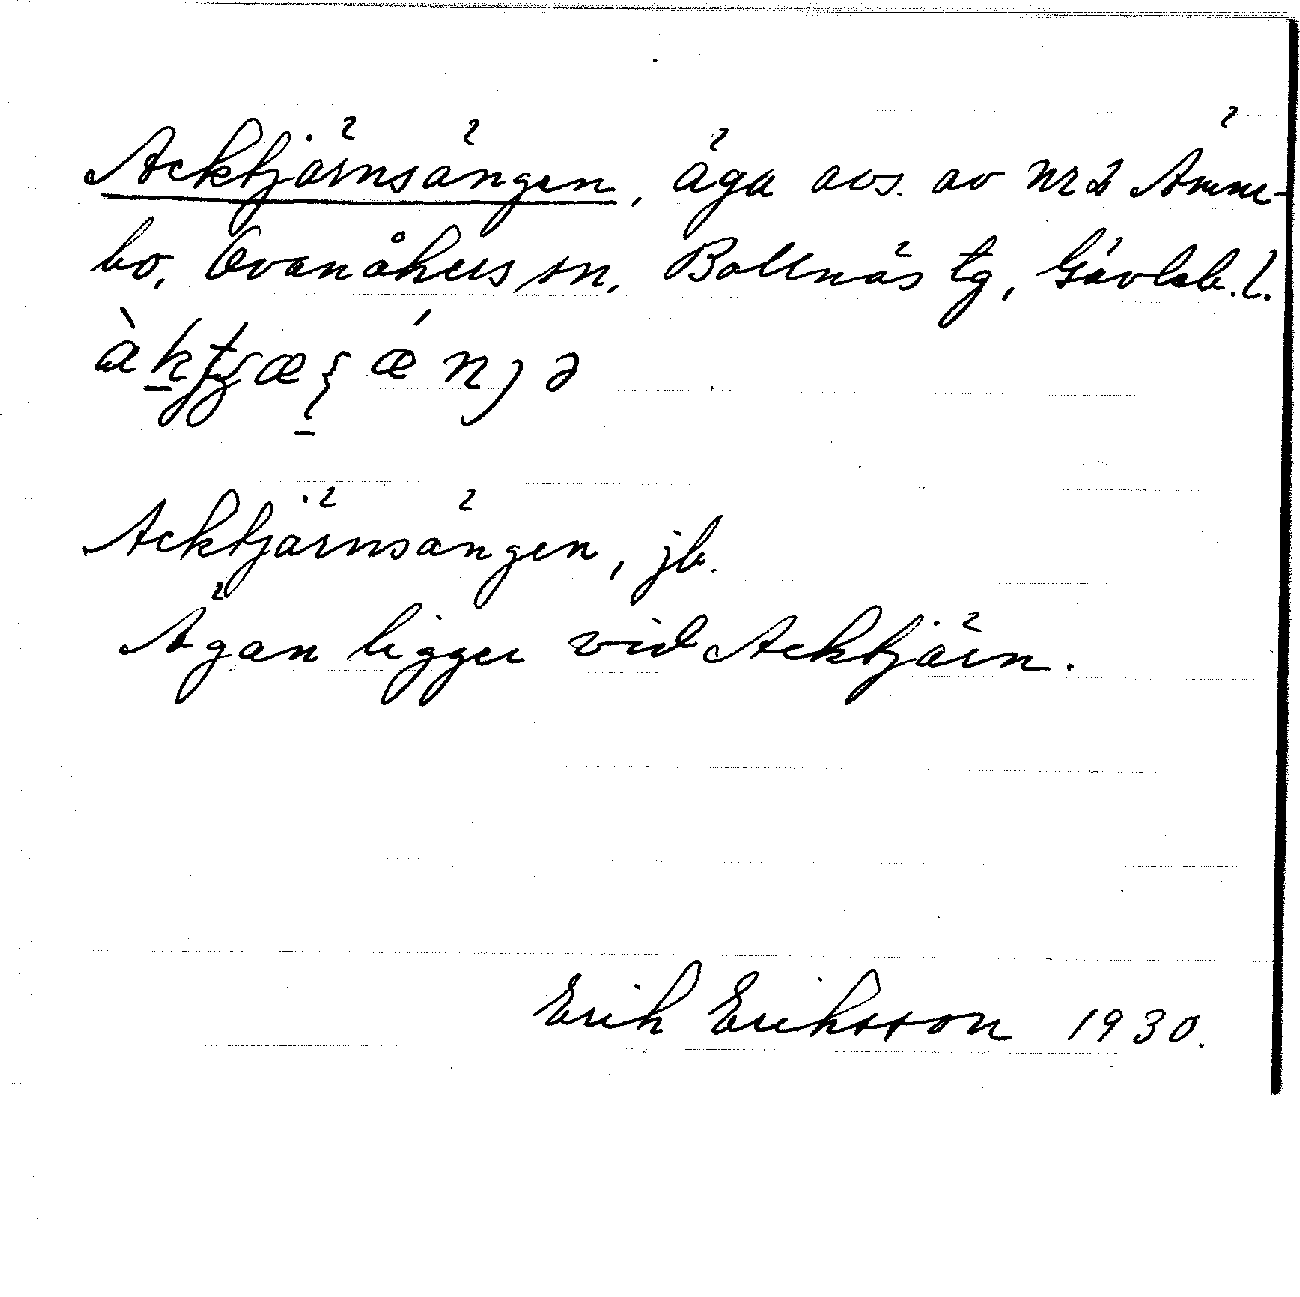 Acktjärnsängen, äga avs. av nr 2 Ämne-
bo, Ovanåkers sn, Bollnäs tg, Gävleb. l.
Acktjärnsängen, jb.
Ägan ligger vid Acktjärn.
Erik Eriksson 1930.